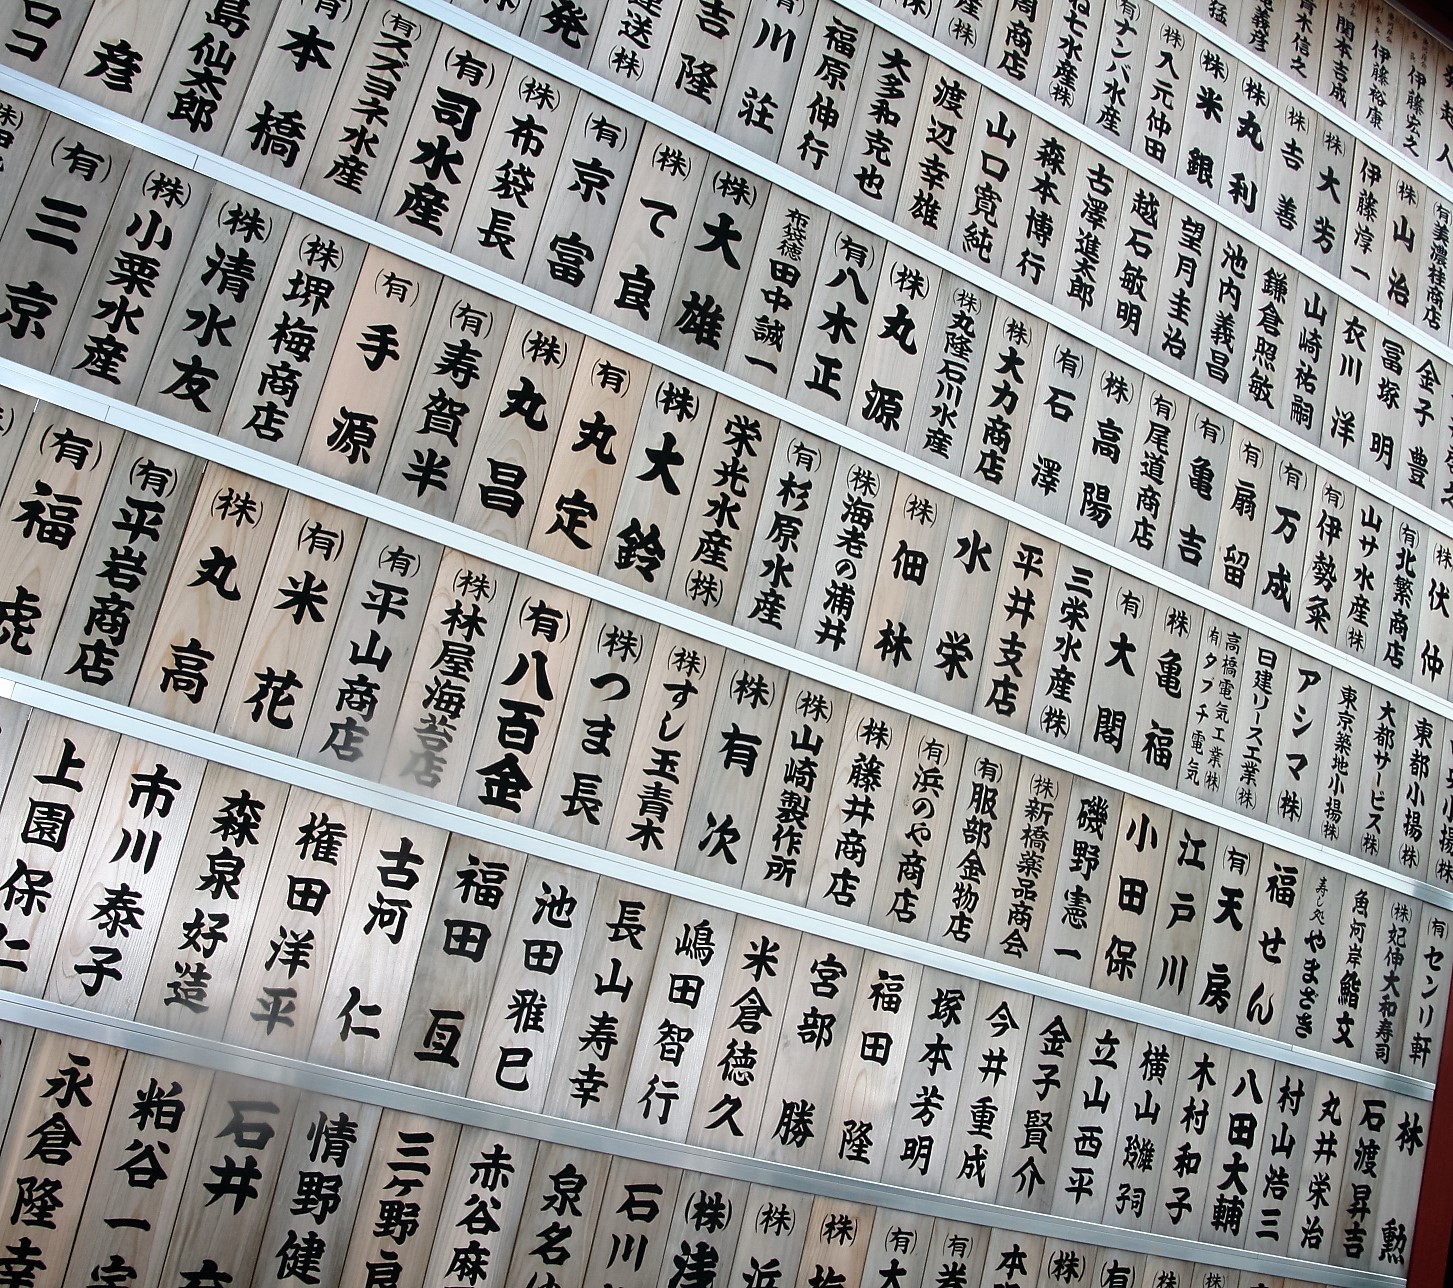 伊藤宏之
伊藤裕康
関本吉成
青木信之
(有)美濃桂商店
(株)山治
伊藤淳一
(株)大芳
(株)吉善
(株)丸利
(株)米銀
(株)入元仲田
(有)ナンバ水産
ね七水産(株)
周商店
金子豊
冨塚明
衣川洋
山崎祐嗣
鎌倉照敏
池内義昌
望月圭治
越石敏明
古澤進太郎
森本博行
山口寛純
渡辺幸雄
大多和克也
福原伸行
(有)川荘
吉隆
運送(株)
発
(株)伏仲
(有)北繁商店
山サ水産(株)
(有)伊勢粂
(有)万成
(有)扇留
(有)亀吉
(有)尾道商店
(株)高陽
(有)石澤
(株)大力商店
(株)丸隆石川水産
(株)丸源
(有)八木正
布袋徳田中誠一
(株)大雄
(株)て良
(有)京富
(株)布袋長
(有)司水産
(有)スズヨネ水産
(有)本橋
島仙太郎
彦
東都小揚(株)
大都サービス(株)
東京築地小揚(株)
アシマ(株)
日建リース工業(株)
高橋電気工業(株)
(有)タプチ電気
(株)亀福
(有)大閣
三栄水産(株)
平井支店
水栄
(株)佃林
(株)海老の浦井
(有)杉原水産
栄光水産(株)
(株)大鈴
(有)丸定
(株)丸昌
(有)寿賀半
(有)手源
(株)堺梅商店
(株)清水友
(株)小栗水産
(有)三京
(有)センリ軒
(株)妃伸大和寿司
魚河岸鮨文
寿し処やまざき
福せん
(有)天房
江戸川
小田保
磯野憲一
(株)新橋薬品商会
(有)服部金物店
(有)浜のや商店
(株)藤井商店
(株)山崎製作所
(株)有次
(株)すし玉青木
(株)つま長
(有)八百金
(株)林屋海苔店
(有)平山商店
(有)米花
(株)丸高
(有)平岩商店
(有)福
虎
林勲
石渡昇吉
丸井栄治
村山浩三
八田大輔
木村和子
横山
立山西平
金子賢介
今井重成
塚本芳明
福田隆
宮部勝
米倉徳久
嶋田智行
長山寿幸
池田雅巳
福田亘
古河仁
権田洋平
森泉好造
市川泰子
上園保仁
石川
泉名
赤谷麻
三ケ野良
情野健
石井
粕谷一
永倉隆幸